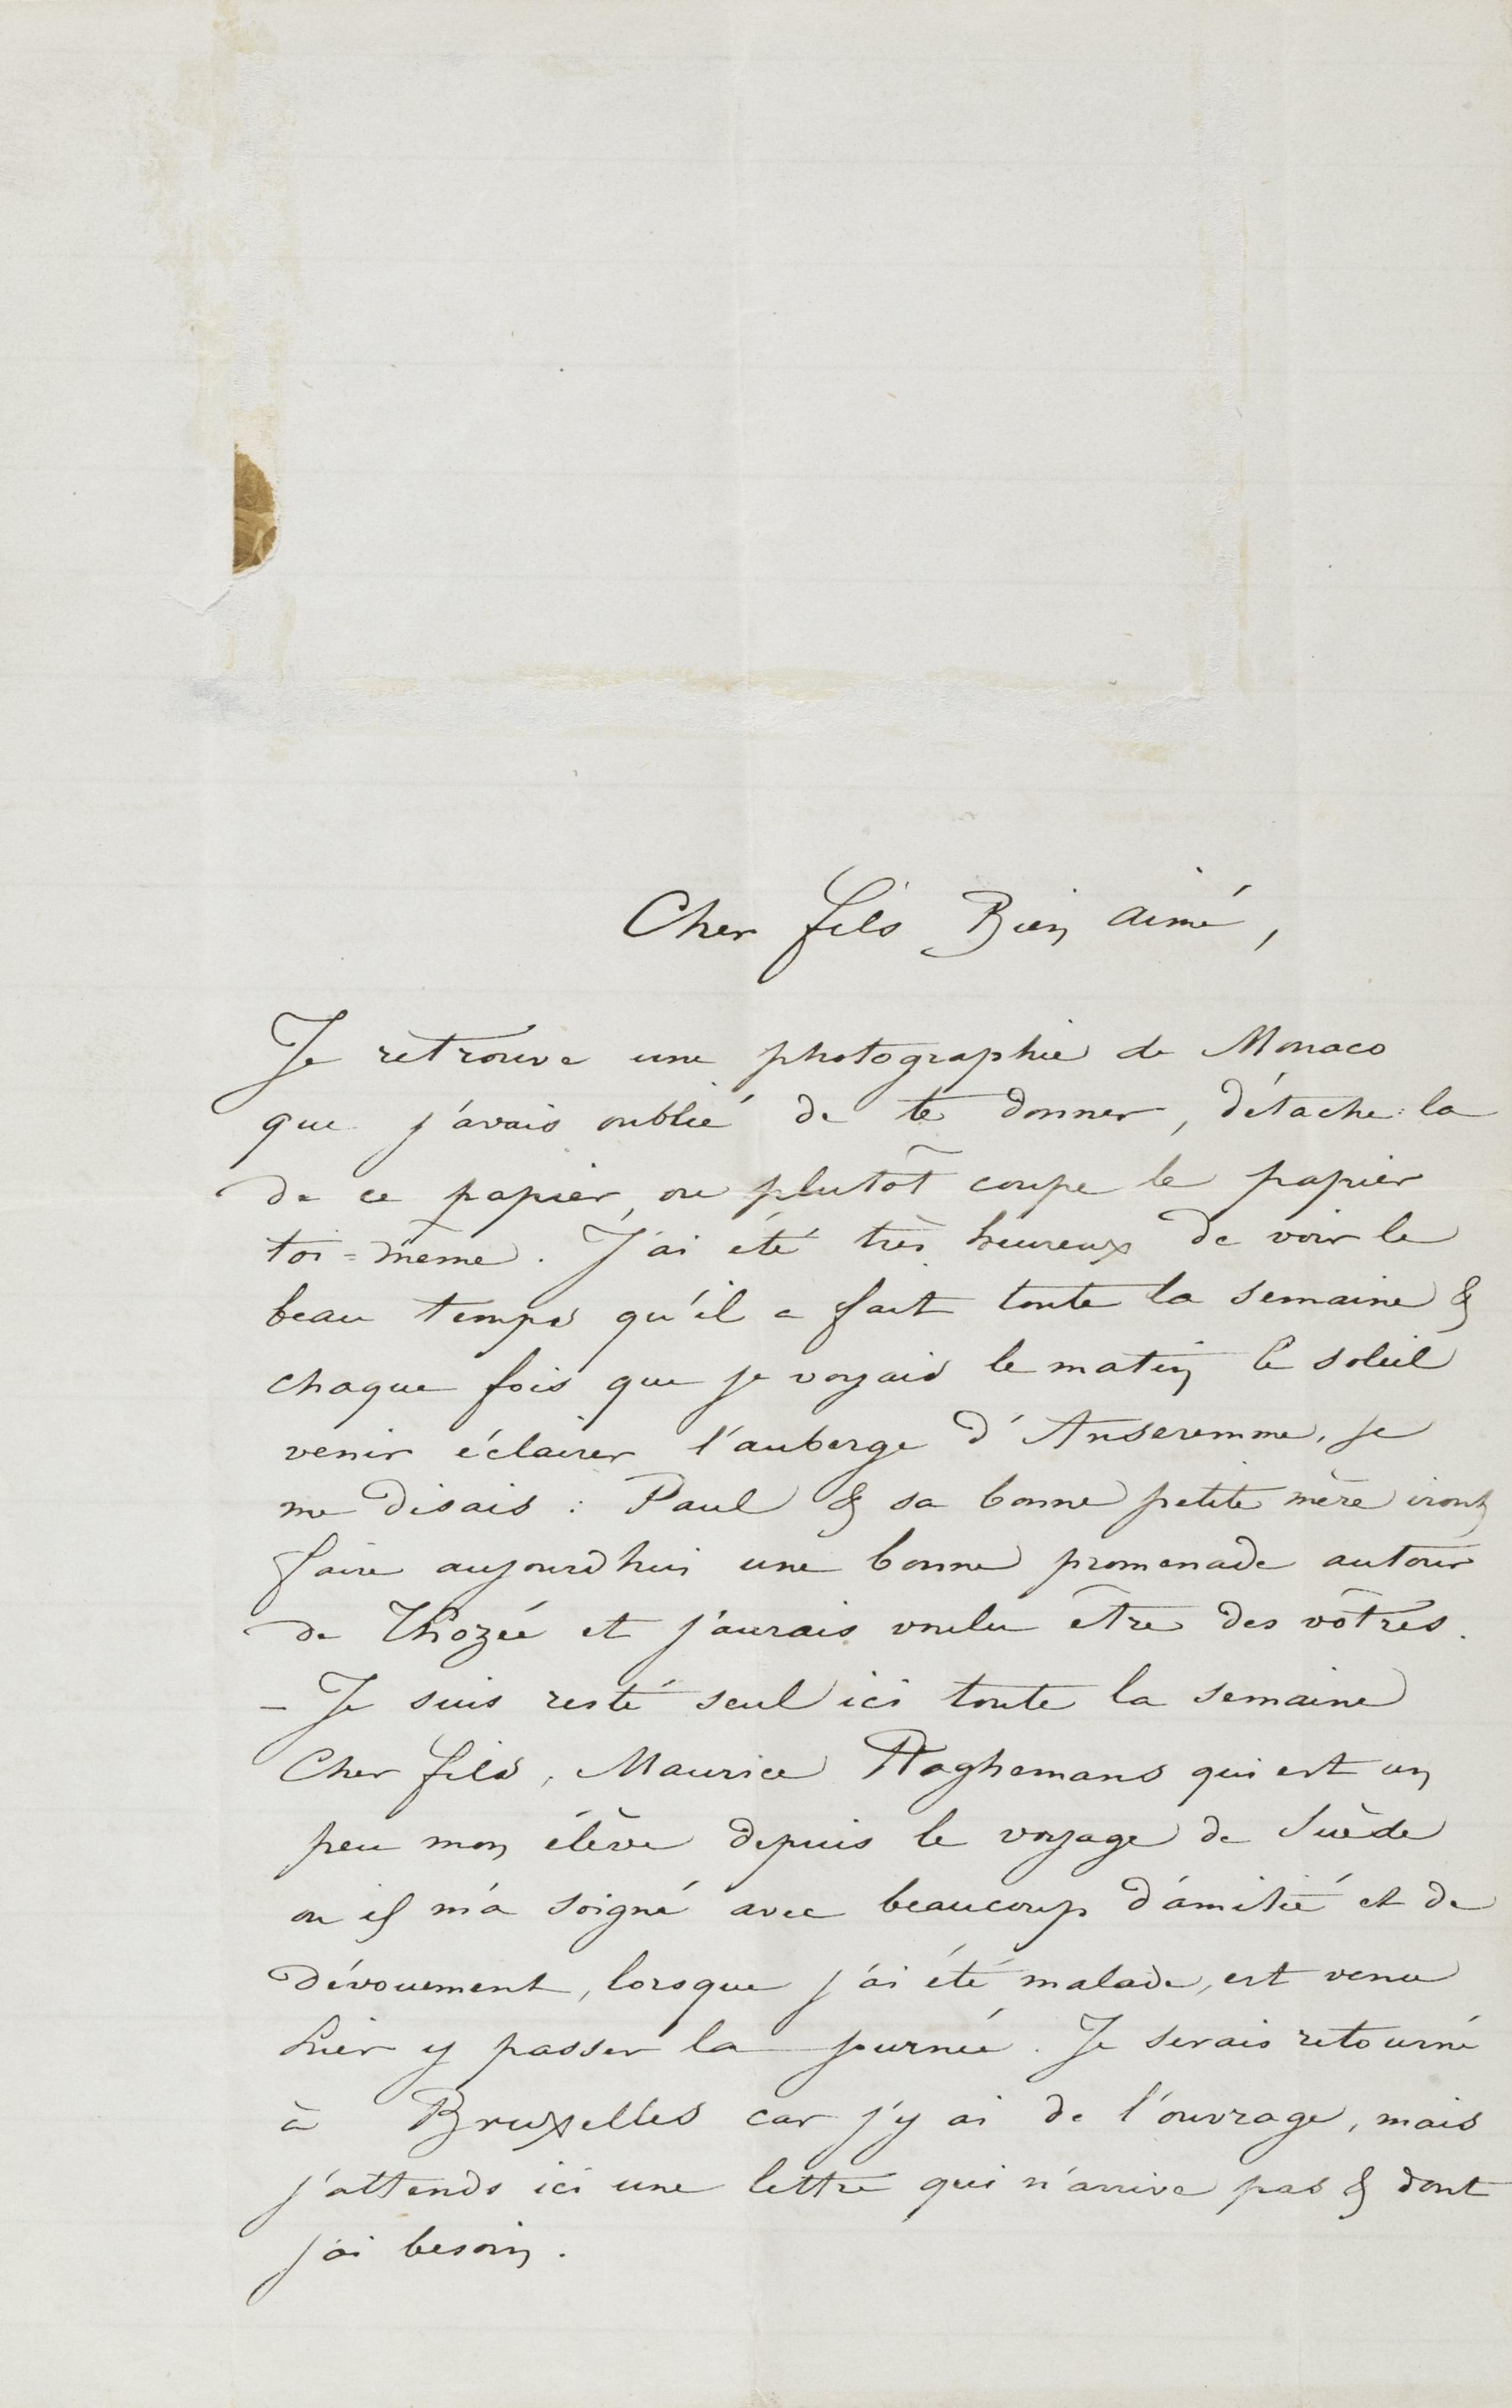 Cher fils Bien aimé,
Je retrouve une photographie de Monaco
que j'avais oublié de te donner, détache-la
de ce papier, ou plutôt coupe le papier
toi=même. J'ai été très heureux de voir le
beau temps qu'il a fait toute la semaine &
chaque fois que je voyais le matin le soleil
venir éclairer l'auberge d'Anseremme, je
me disais : Paul & sa bonne petite mère iront
faire aujourd'hui une bonne promenade autour
de Thozée et j'aurais voulu être des vôtres.
– Je suis resté seul ici toute la semaine
Cher fils, Maurice Haghemans qui est un
peu mon élève depuis le voyage de Suède
ou il m'a soigné avec beaucoup d'amitié et de
dévouement, lorsque j'ai été malade, est venu
hier y passer la journée. Je serais retourné
à Bruxelles car j'y ai de l'ouvrage, mais
j'attends ici une lettre qui n'arrive pas & dont
j'ai besoin.